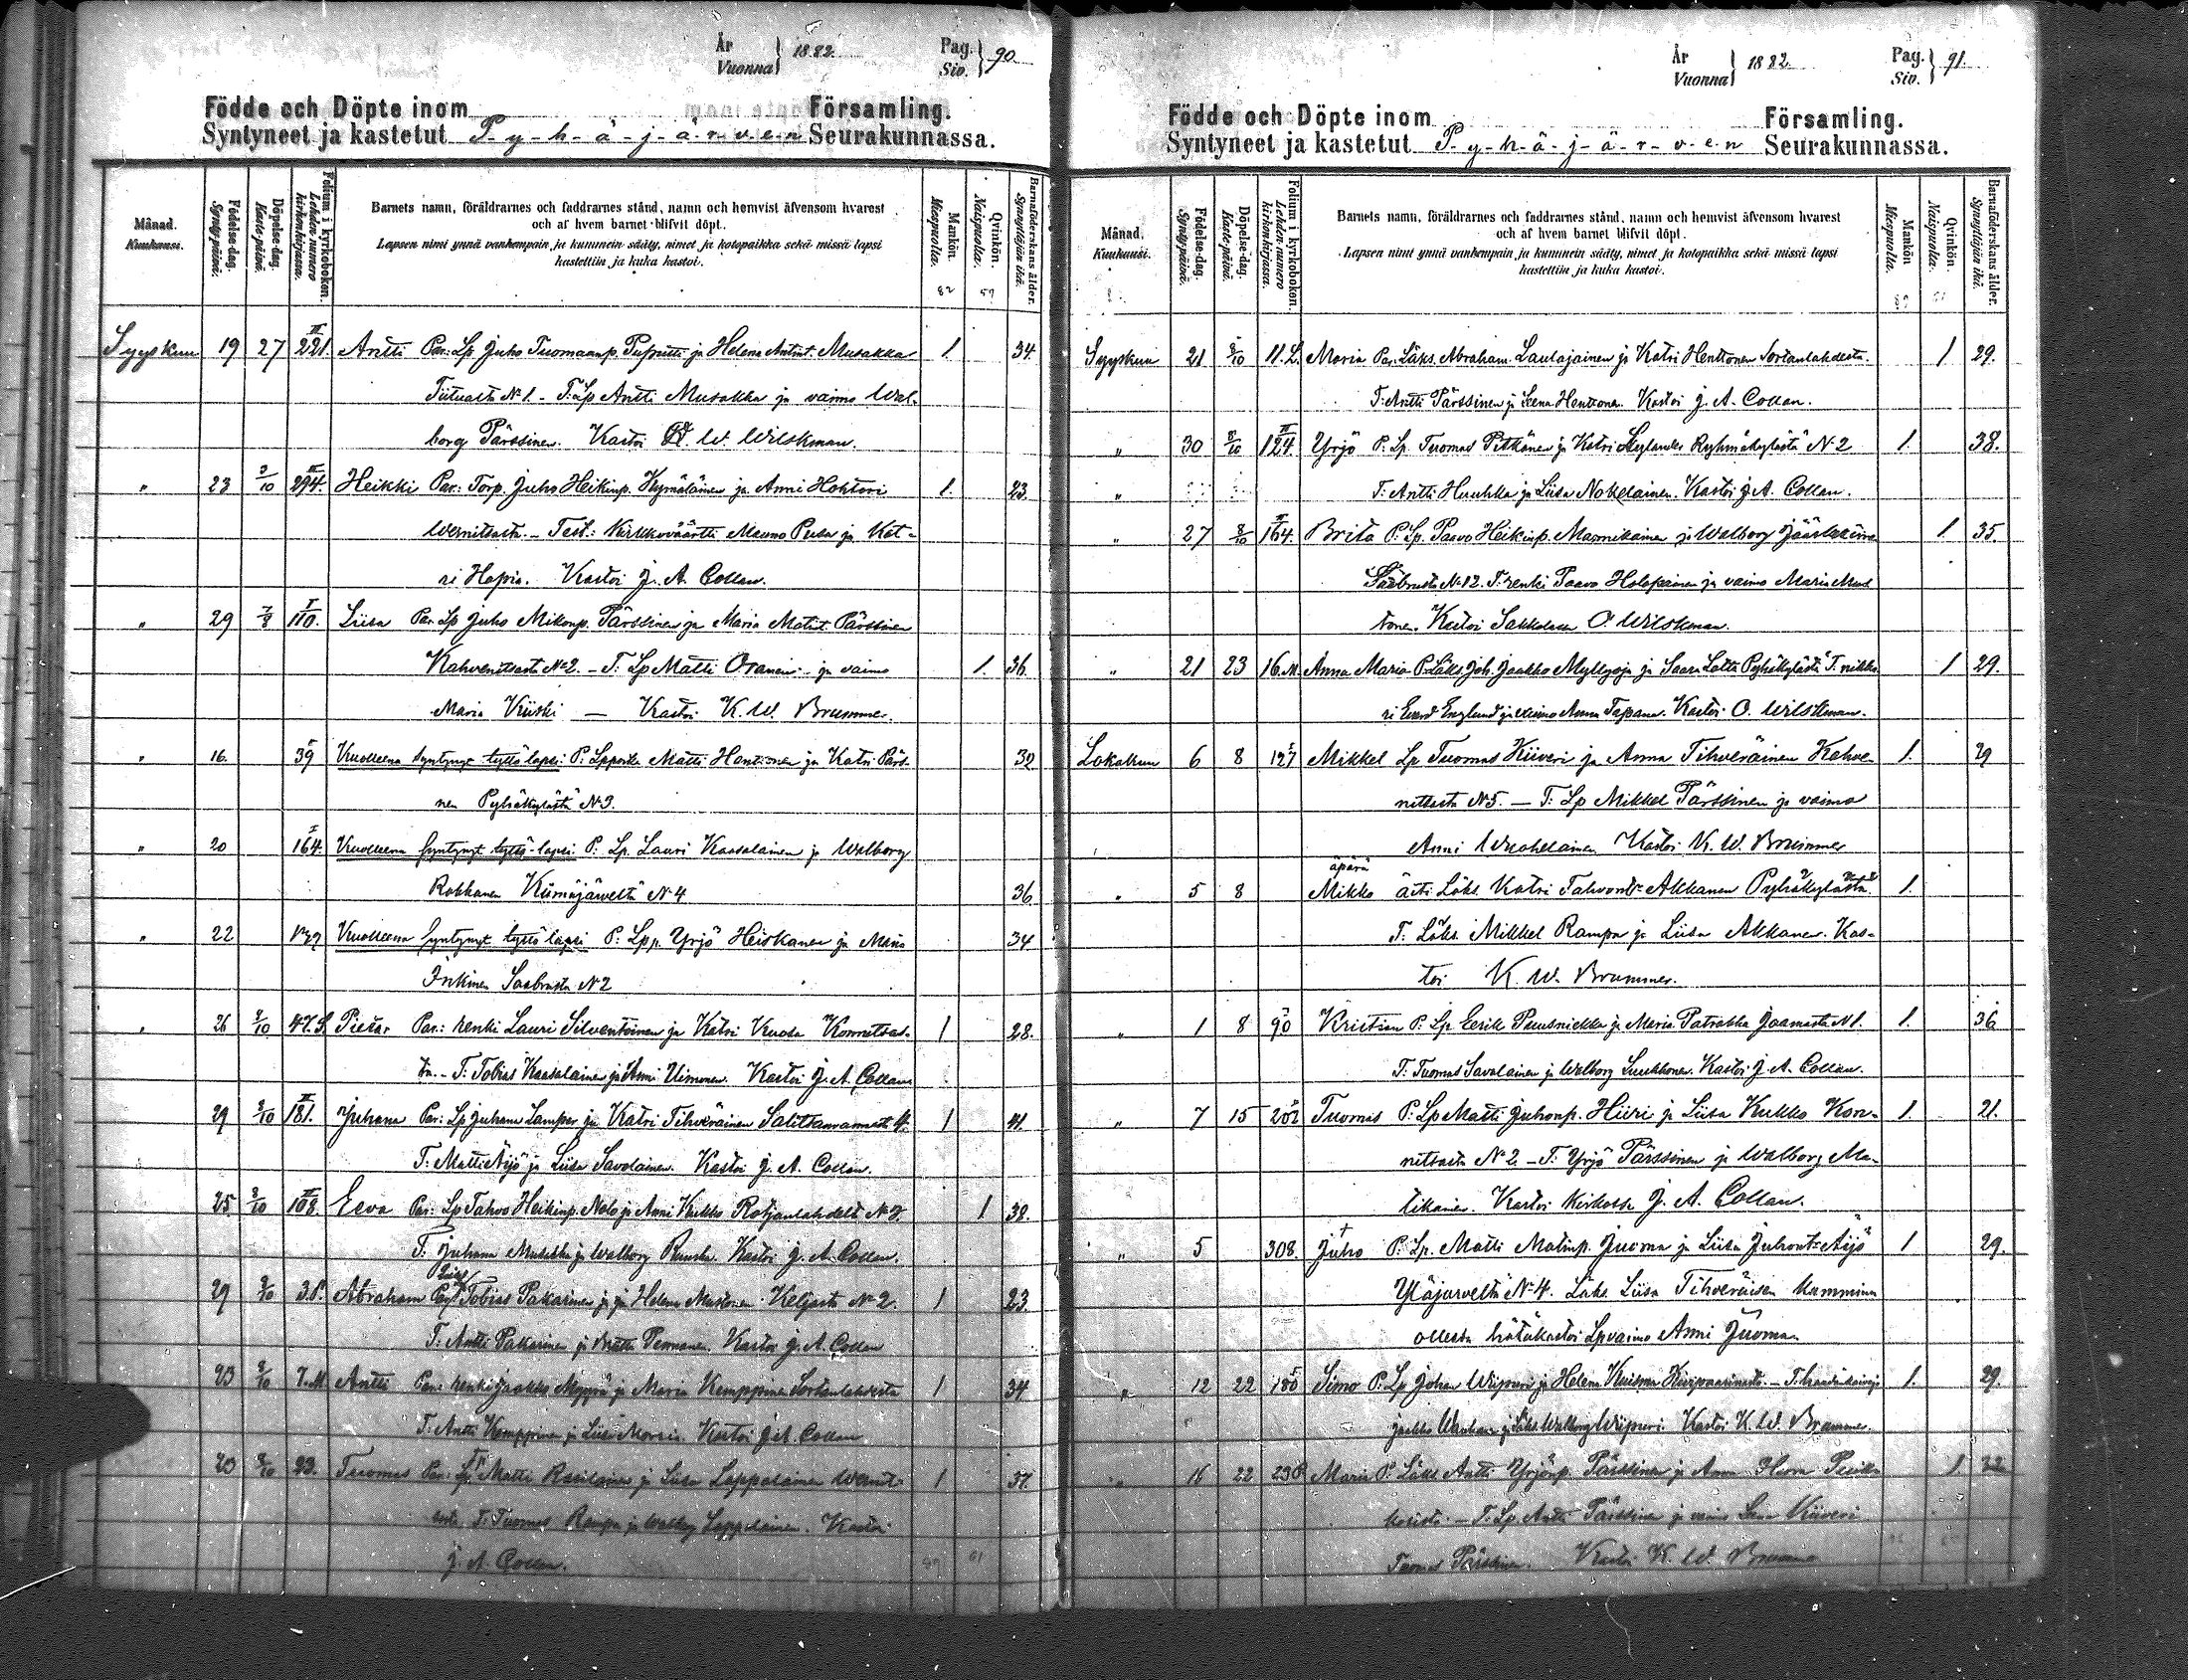 År
Vuonna } 1882.
Pag.
Siv. } 90
Födde och Döpte inom Församling.
Syntyneet ja kastetut P-y-h-ä-j-ä-r-v-e-n Seurakunnassa.
Månad. Kuukausi.
Födelse-dag. Synty-päivä.
Döpelse-dag. Kaste-päivä.
Folium i kyrkoboken. Lehden-numero kirkonkirjassa.
Barnets namn, föräldrarnes och faddrarnes stånd, namn och hemvist äfvensom hvarest
och af hvem barnet blifvit döpt.
Lapsen nimi ynnä vanhempain ja kummein sääty, nimet ja kotopaikka sekä missä lapsi
kastettiin ja kuka kastoi.
Mankön. Miespuolta.
Qvinkön. Naispuolta.
Barnaföderskans ålder. Synnyttäjän ikä.
82 57
Syyskuu 19 27 II 221. Antti Par: Lp Juho Tuomaanp. ja Helena Antint. Musakka 1. 34.
N:o 1 - T: Lp Antti Musakka ja vaimo Wal-
borg Pärssinen. Kastoi W. Wilskman.
" 23 2/10 II 294. Heikki Par: Torp. Juho Heikinp. Kymäläinen ja Anni Hohtori 1. 23.
Wernitsasta. - Test: Kirkkoväärtti Mauno Pusa ja Kat-
ri Hapia. Kastoi J. A. Collan.
" 29 I 110. Liisa Par. Lp Juho Mikonp. Pärssinen ja Maria Matint. Pärssinen
Kahvenitsasta N:o 2. - T: Lp Matti Oranen ja vaimo 1. 36.
Maria Kiiski - Kastoi K. W. Brummer.
" 16. I 39 Kuolleena syntynyt tyttö lapsi P: Matti Hantonen ja Katri Pärs- 32
nen Pyhäkylästä N:3.
" 20 I 164. Kuolleena syntynyt tyttö-lapsi P: Lp. Lauri Kaasalainen ja Walborg
Rokkanen Kiimajärveltä N:4 36.
" 22 Kuolleena syntynyt tyttö lapsi P: Lpp. Yrjö Heiskanen ja Maria 34
Inkinen N 2
" 26 2/10 47.S. Pietar Par.: renki Lauri Silventoinen ja Katri Kuosa Konnitsas- 1 28.
ta. - T: Tobias Kaasalainen ja Anni Uimonen. Kastoi J. A. Collan
29 2/10 II 181. Juhana Par: Lp Juhana Lamper ja Katri Tihveräinen 1 41.
T: Matti Äijö ja Liisa Savolainen. Kastoi J. A. Collan.
25. 2/10 II 108. Eeva Par: Lp Tahvo Heikinp. ja Anni Kukko Rotjanlahdelta 1 38.
T: Juhana Musakka ja Walborg Ruuska. Kastoi J. A. Collan.
29 2/10 3.P. Abraham Tobias Pakarinen ja Helena Mustonen Keljasta N:2. 1 23.
T: Antti Pakarinen ja Kastoi J. A. Collan
23 2/10 7.M. Antti Par: renki Jaakko Myyrä ja Maria Kemppinen Sortanlahdesta 1 34
T: Antti Kemppinen ja Liisa Kastoi J A. Collan
23 2/10 23. Tuomas Par: Matti ja Liisa Lappalainen 1
T: Tuomas Rampa ja Walborg Kastoi
J. A. Collan.
År
Vuonna } 1882.
Pag.
Siv. } 91.
Födde och Döpte inom Församling.
Syntyneet ja kastetut P-y-h-ä-j-ä-r-v-e-n Seurakunnassa.
Månad. Kuukausi.
Födelse-dag. Synty-päivä.
Döpelse-dag. Kaste-päivä.
Folium i kyrkoboken. Lehden-numero kirkonkirjassa.
Barnets namn, föräldrarnes och faddrarnes stånd, namn och hemvist äfvensom hvarest
och af hvem barnet blifvit döpt.
Lapsen nimi ynnä vanhempain ja kummein sääty, nimet ja kotopaikka sekä missä lapsi
kastettiin ja kuka kastoi.
Mankön Miespuolta.
Qvinkön. Naispuolta.
Barnaföderskans ålder. Synnyttäjän ikä.
Syyskuu 21 8/10 11.L. Maria Par. Läks. Abraham Laulajainen ja Katri Henttonen Sortanlahdesta. 1 29.
T: Antti Pärssinen ja Leena Henttonen. Kastoi J. A. Collan.
" 30 8/10 II 124. Yrjö P: Lp. Tuomas Pitkänen ja Katri Ryhmäkylästä N:2 1. 38.
" T: Antti Huuhka ja Liisa Nokelainen. Kastoi J. A. Collan.
" 27 8/10 II 164. Brita P: Lp. Paavo Heikinp. Mannikainen ja Walborg Jääskeläinen 1. 35.
N:12. T: renki Paavo Holopainen ja vaimo Maria Mus-
tonen. Kastoi Sakkolassa O. Wilskman.
" 21 23 16.M. Anna Maria P: Läks. Joh. Jaakko Myllyoja ja Saara Lotta Pyhäkylästä T: nikka- 1 29.
ri Evard Englund ja vaimo Anna Tapana. Kastoi O. Wilskman.
Lokakuu 6 8 I 127 Mikkel Lp Tuomas Kiiveri ja Anna Tihveräinen Kahve- 1. 29
nitsasta N:5. - T: Lp Mikkel Pärssinen ja vaimo
Anni Wuohelainen Kastoi K. W. Brummer
äpärä
" 5 8 Mikko äiti Läks. Katri Tahvont. Akkanen Pyhäkylästä 1.
T: Läks. Mikkel Rampa ja Liisa Akkanen. Kas-
toi K. W. Brummer.
" 1 8 I 90 Kristian P: Lp Eerik Puusniekka ja Maria Patrakka Jaamasta N 1. 1. 36
T: Tuomas Savolainen ja Walborg Luukkonen. Kastoi J. A. Collan.
" 7 15 202 Tuomas P: Lp Matti Juhonp. Hiiri ja Liisa Kukko Kon- 1. 21.
nitsasta N:2 - T: Yrjö Pärssinen ja Walborg Ma-
tikainen. Kastoi kirkossa J. A. Collan.
" 5 308. Juho P: Lp. Matti Matinp. Juoma ja Liisa Juhont. Äijö 1 29.
Yläjärveltä N:4. Läks. Liisa Tihveräisen kummina
ollessa hätäkastoi Lp.vaimo Anni Juoma.
" 12 22 180 Simo P: Lp Johan Wiipuri ja Helena Kuisma 1. 29.
Jaakko ja Läks. Walborg Wiipuri. Kastoi K. W. Brummer.
" 16 22 23P. Maria P: Läks. Antti Yrjönp. Pärssinen ja Anna 1. 32
T: Lp Antti Pärssinen ja vaimo Leena Kiiveri
Tuomas Pärssinen. Kastoi K. W. Brummer